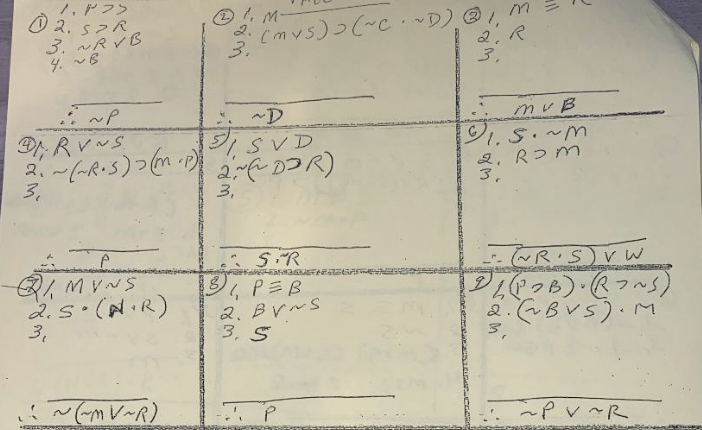 ① 1. P⊃S
2. S⊃R
3. ~R∨B
4. ~B
∴ ~P
② 1. M
2. (M∨S)⊃(~C·~D)
3.
∴ ~D
③ 1. M ≡ R
2. R
3.
∴ M∨B
④ 1. R∨~S
2. ~(~R·S)⊃(M·P)
3.
∴ P
5) 1. S∨D
2. ~(~D⊃R)
3.
∴ S·~R
6) 1. S·~M
2. R⊃M
3.
∴ (~R·S)∨W
⑦ 1. M∨~S
2. S·(N·R)
3.
∴ ~(~M∨~R)
8) 1. P≡B
2. B∨~S
3. S
∴ P
9) 1. (P⊃B)·(R⊃~S)
2. (~B∨S)·M
3.
∴ ~P∨~R